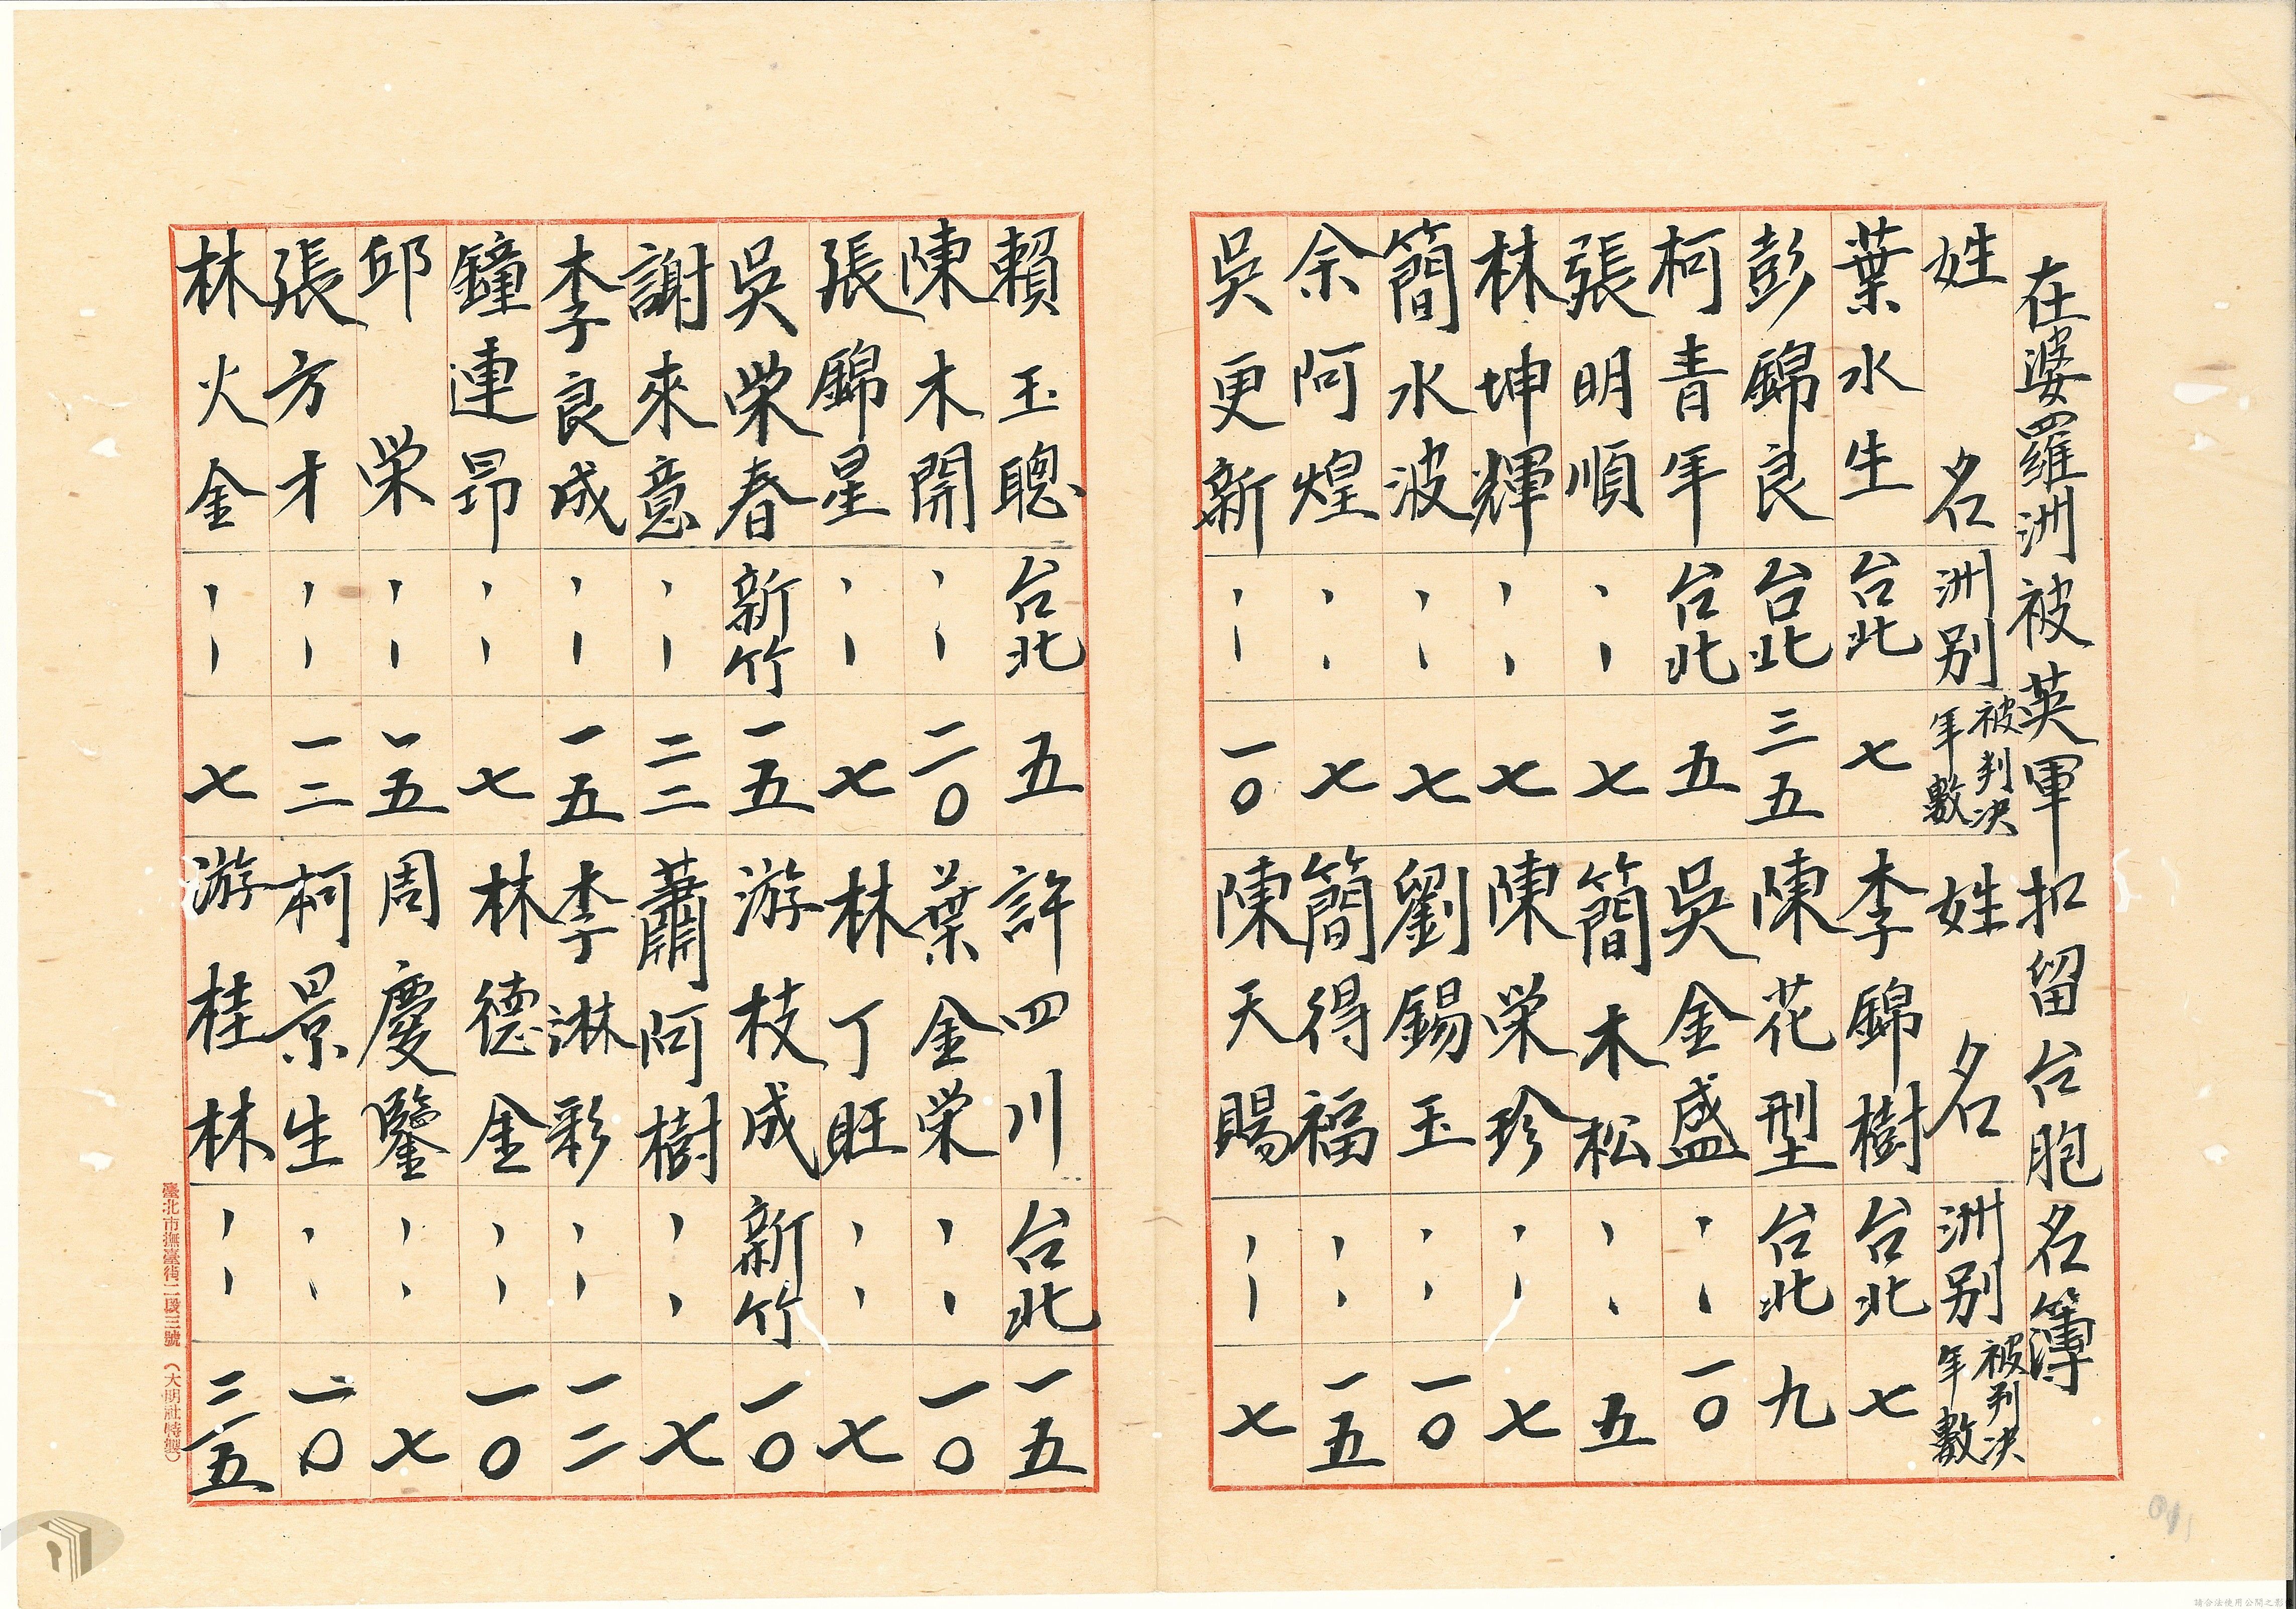 在婆羅洲被英軍扣留台胞名簿
姓名 洲别 被判决年數 姓名 洲别 被判决年數
葉水生 台北 七 李錦樹 台北 七
彭錦良 台北 三五 陳花型 台北 九
柯青年 台北 五 吳金盛 〃 一〇
張明順 〃 七 簡木松 〃 五
林坤輝 〃 七 陳栄珍 〃 七
簡水波 〃 七 劉錫玉 〃 一〇
余阿煌 〃 七 簡得福 〃 一五
吳更新 〃 一〇 陳天賜 〃 七
賴玉聰 台北 五 許四川 台北 一五
陳木開 〃 二〇 葉金栄 〃 一〇
張錦星 〃 七 林丁旺 〃 七
吳栄春 新竹 一五 游枝成 新竹 一〇
謝來意 〃 二三 蕭阿樹 〃 七
李良成 〃 一五 李淋彩 〃 一二
鐘連昂 〃 七 林德金 〃 一〇
邱栄 〃 一五 周慶鑒 〃 七
張方才 〃 一二 柯景生 〃 一〇
林火金 〃 七 游桂林 〃 三五
臺北市撫臺街二段三號（大明社特製）
請合法使用公開之影